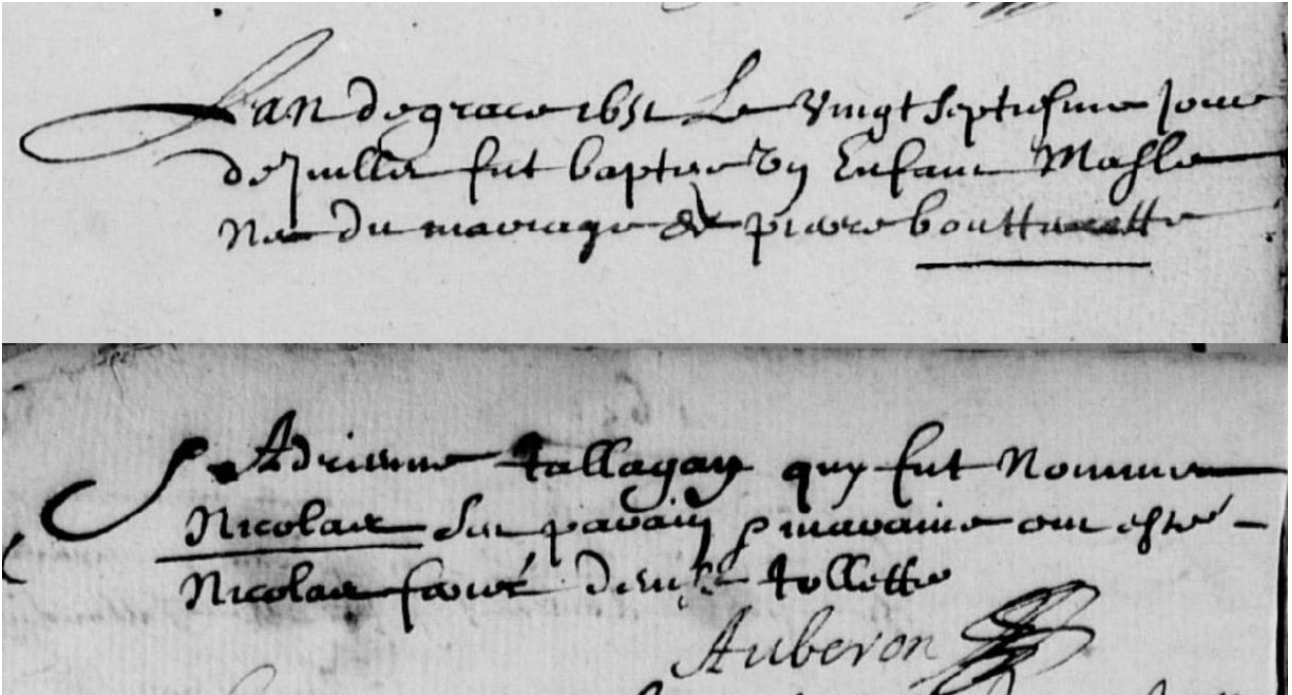 Lan de grace 1651 Le vingt septiesme jour
de Juillet fut baptise un Enfant Masle
Ne du mariage de pierre
Adrienne tallagan quy fut Nomme
Nicolas Son parain & maraine ont esté
Nicolas tollette
Auberon